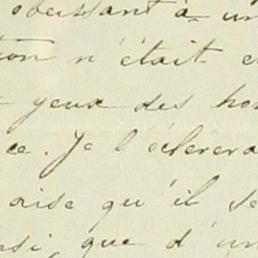 obéissant à un
tion n'était e
yeux des ho
ce. Je l'élèvera
aise qu'il se
nsi, que d'un